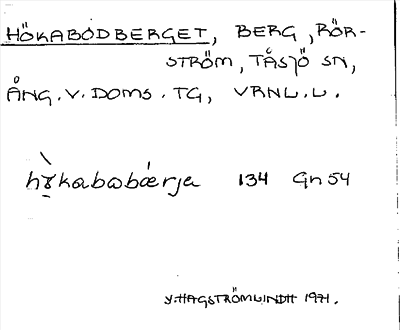 HÖKABODBERGET, BERG, RÖR-
STRÖM, TÅSJÖ SN,
ÅNG. V. DOMS. TG, VRNL. L.
134 Gn 54
Y. HAGSTRÖMLINDH 1971.